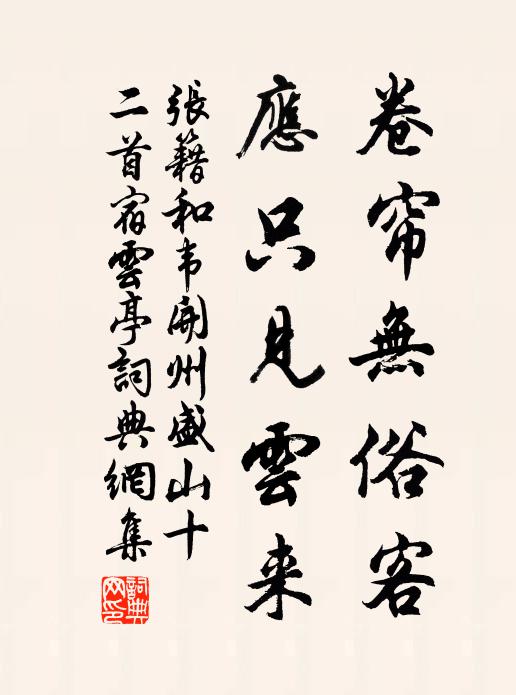 卷帘無俗客
應只見雲来
張籍和韦開州盛山十
二首宿雲亭詞典網集